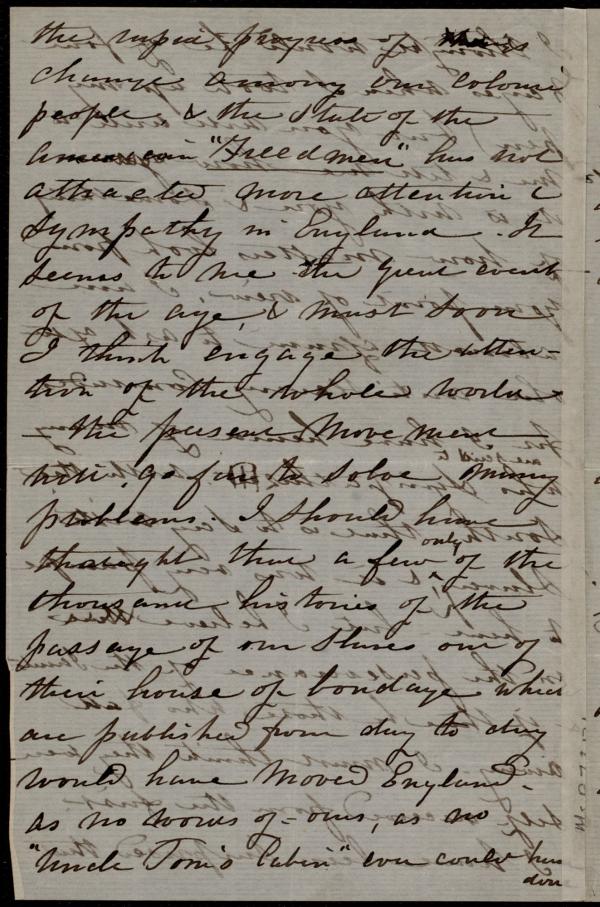 the rapid progress of
change among our colored
people & the state of the
American "Freedmen" has not
attracted more attention &
sympathy in England. It
seems to me the great event
of the age, & must soon
I think engage the atten-
tion of the whole world
- the present movement
will go far to solve many
problems. I should have
thought that a few only of the
thousand histories of the
passage of our slaves out of
their house of bondage which
are published from day to day
would have moved England -
as no words of - ours, as no
"Uncle Tom's Cabin" ever could have
done